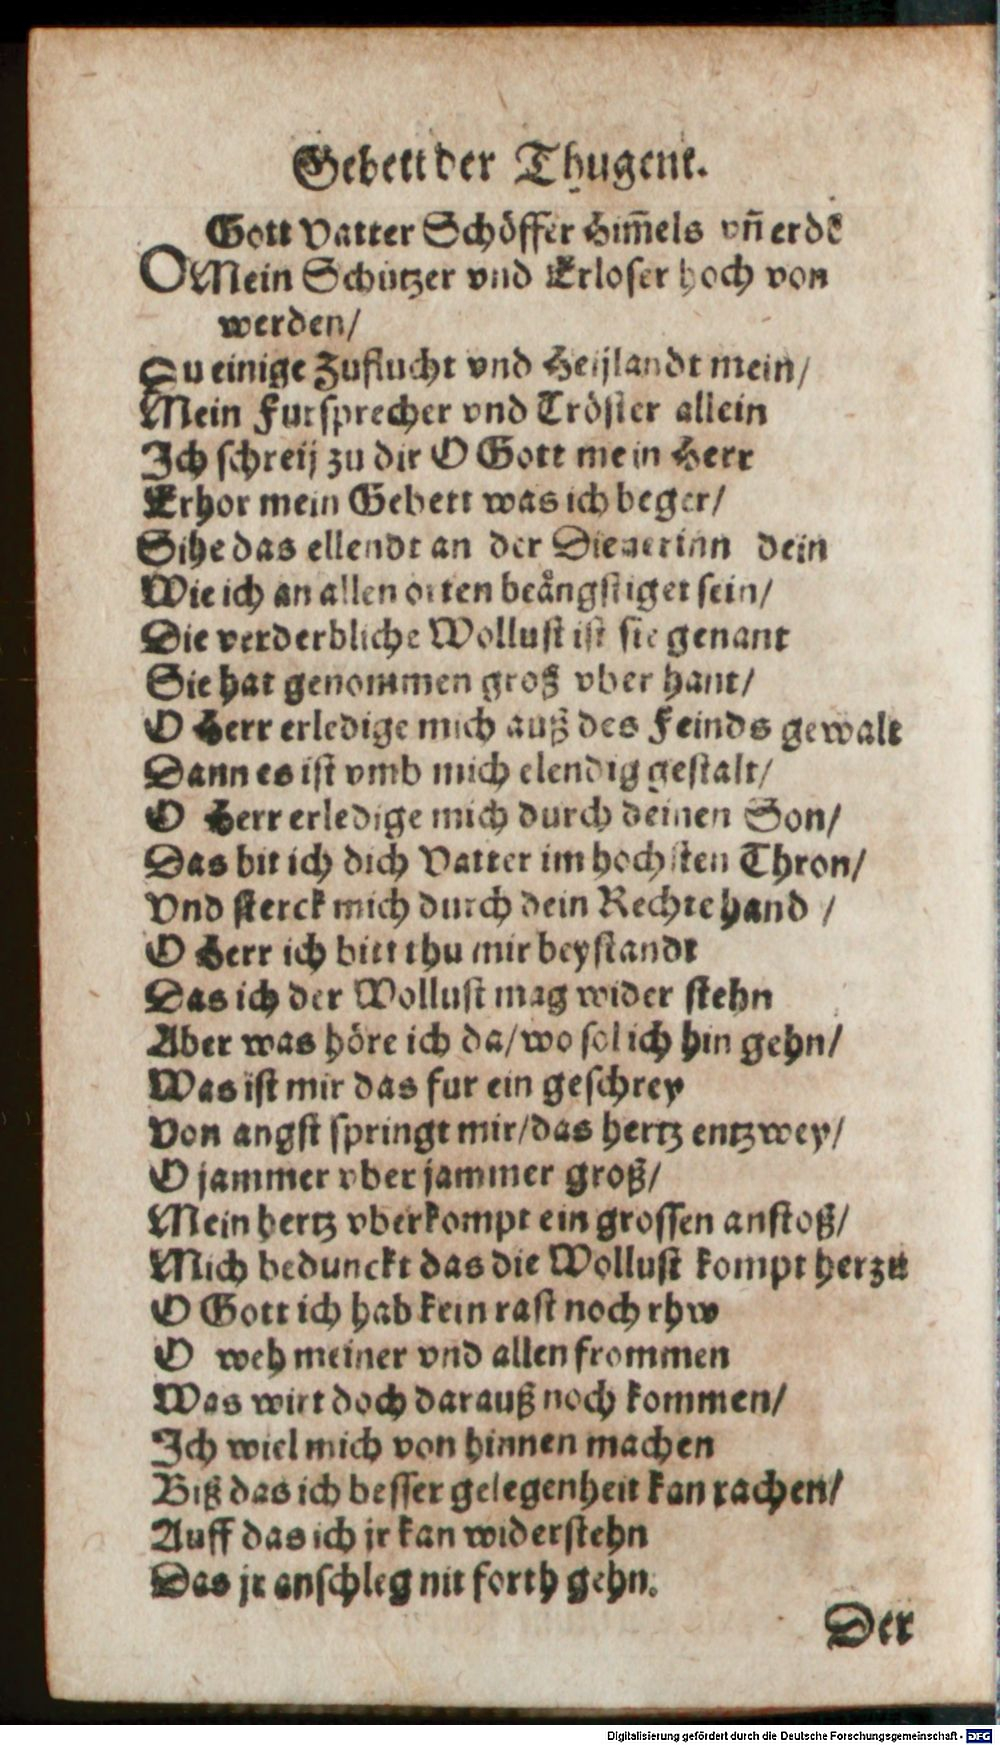 Gebett der Thugent.
O Gott Vatter Schöffer Him̃els vñ erdẽ
Mein Schutzer vnd Erloser hoch von
werden/
Du einige Zuflucht vnd Heijlandt mein/
Mein Fursprecher vnd Tröster allein
Ich schreij zu dir O Gott mein Herr
Erhor mein Gebett was ich beger/
Sihe das ellendt an der Dienerinn dein
Wie ich an allen orten beångstiget sein/
Die verderbliche Wollust ist sie genant
Sie hat genommen groß vber hant/
O Herr erledige mich auß des Feinds gewalt
Dann es ist vmb mich elendig gestalt/
O Herr erledige mich durch deinen Son/
Das bit ich dich Vatter im hochsten Thron/
Vnd sterck mich durch dein Rechte hand /
O Herr ich bitt thu mir beystandt
Das ich der Wollust mag wider stehn
Aber was höre ich da/wo sol ich hin gehn/
Was ist mir das fur ein geschrey
Von angst springt mir/das hertz entzwey/
O jammer vber jammer groß/
Mein hertz vberkompt ein grossen anstoß/
Mich bedunckt das die Wollust kompt herzu
O Gott ich hab kein rast noch rhw
O weh meiner vnd allen frommen
Was wirt doch darauß noch kommen/
Ich wiel mich von hinnen machen
Biß das ich besser gelegenheit kan rachen/
Auff das ich jr kan widerstehn
Das jr anschleg nit forth gehn.
Der
Digitalisierung gefördert durch die Deutsche Forschungsgemeinschaft - DFG